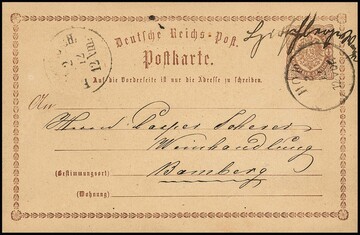 Deutsche Reichs-Post.
Postkarte.
Auf die Vorderseite ist nur die Adresse zu schreiben.
12 VIII
An
Herrn Casper
Weinhandlung
(Bestimmungsort) Bamberg
(Wohnung)